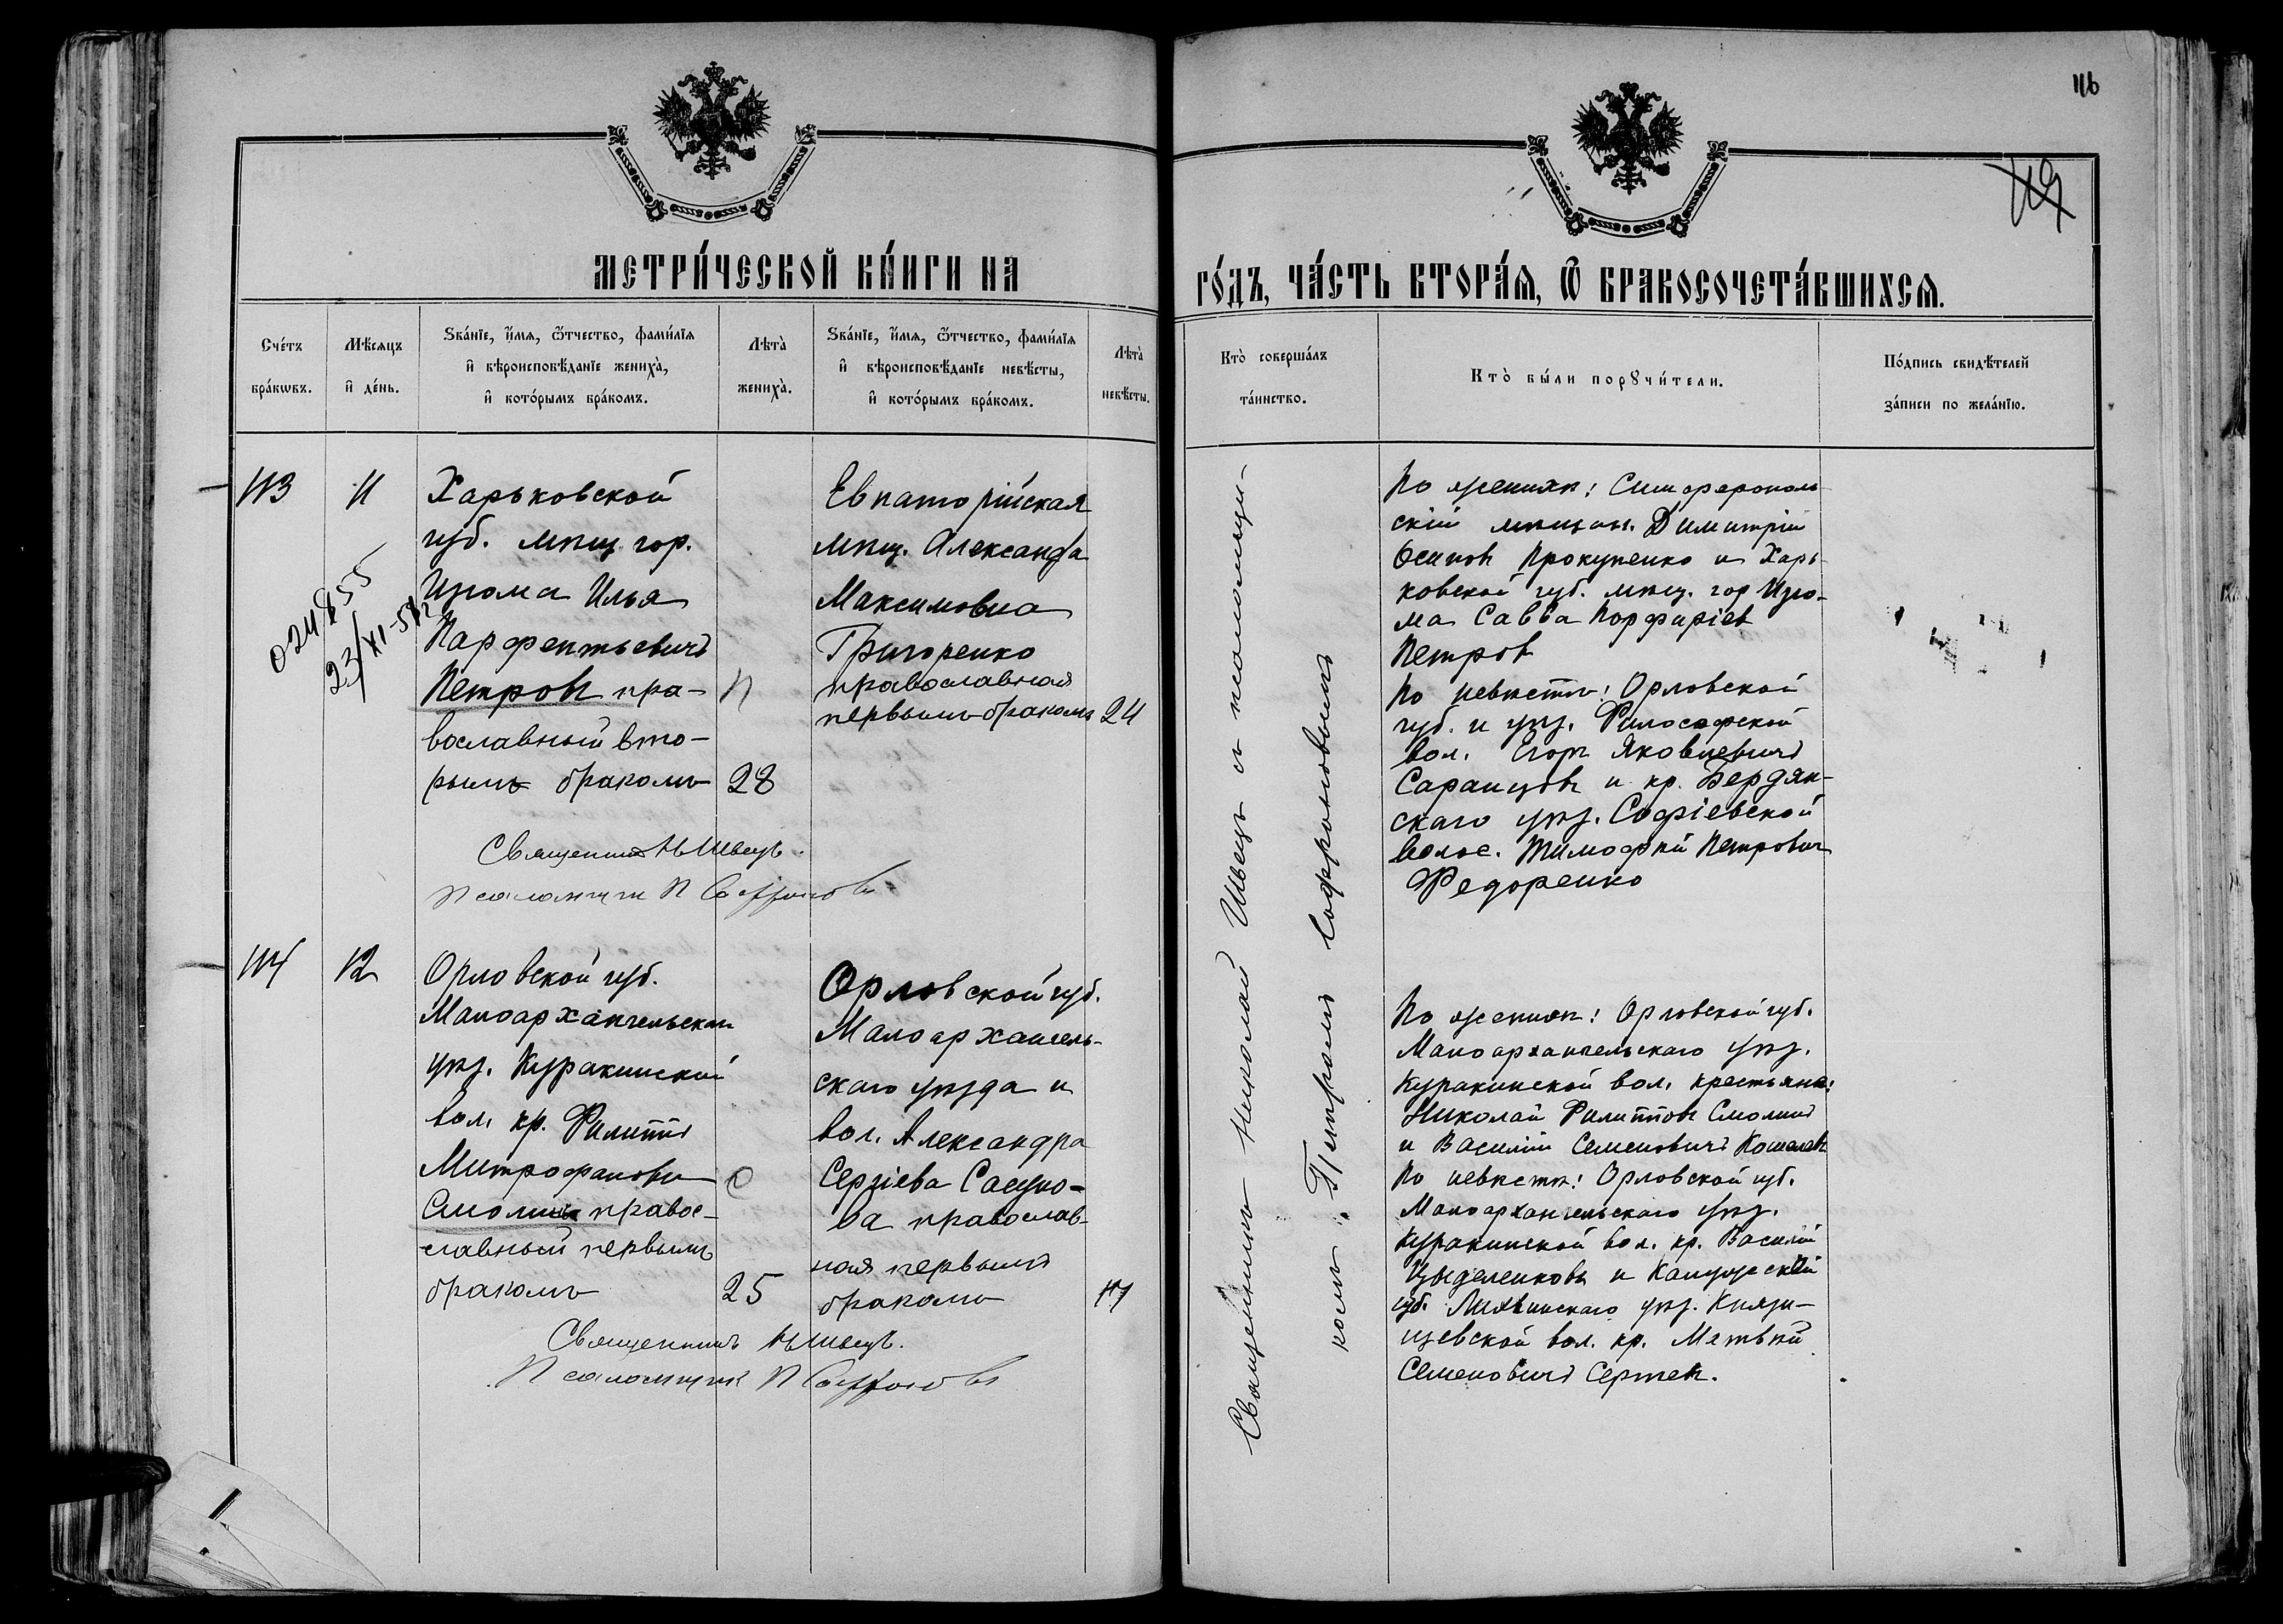 116
119
МЕТРИ́ЧЕСКОЙ КНИ́ГИ НА
ГО́ДЪ, ЧА́СТЬ ВТОРА́Ѧ, Ѿ БРАКОСОЧЕТА́ВШИХСѦ.
Сче́тъ бра́кѡвъ.
Мѣ́сяцъ и҆ де́нь.
Ѕва́нїе, и҆́мѧ, ѻ҆́тчество, фами́лїѧ
и҆ вѣроисповѣ́данїе жениха̀,
и҆ кото́рымъ бра́комъ.
Лѣта̀ жениха̀.
Ѕва́нїе, и҆́мѧ, ѻ҆́тчество, фами́лїѧ
и҆ вѣроисповѣ́данїе невѣ́сты,
и҆ кото́рымъ бра́комъ.
Лѣта̀ невѣ́сты.
Кто̀ соверша́лъ
та́инство.
Кто̀ бы́ли порꙋчи́тели.
По́дпись свидѣ́телей
за́писи по жела́нїю.
113
11
Харьковской
губ. мѣщ. гор.
Изюма Илья
Парфентьевичъ
Петровъ пра-
вославный вто-
рымъ бракомъ
28
Евпаторійская
мѣщ. Александра
Максимовна
Григоренко
православная
первымъ бракомъ
24
024855
23/XI-51
Священникъ Н Швецъ.
Псаломщикъ П Софроновъ
Священникъ Николай Швецъ съ псаломщи-
комъ Петромъ Софроновымъ
По женихѣ: Симферополь-
скій мѣщан. Димитрій
Осиповъ Прокупенко и Харь-
ковской губ. мѣщ. гор Изю-
ма Савва Порфиріев
Петров
По невѣстѣ: Орловской
губ. и уѣз. Философской
вол. Егоръ Яковлевичъ
Саранцовъ и кр. Бердян-
скаго уѣз. Софіевской
волос. Тимофѣй Петрович
Федоренко
114
12
Орловской губ.
Малоархангельскаго
уѣз. Куракинской
вол. кр. Филиппъ
Митрофановъ
Смолинъ правос-
славный первымъ
бракомъ
25
Орловской губ.
Малоархангель-
скаго уѣзда и
вол. Александра
Сергіева
ва православ-
ная первымъ
бракомъ
Священникъ Н Швецъ.
Псаломщикъ П Софроновъ
По женихѣ: Орловской губ.
Малоархангельскаго уѣз.
Куракинской вол. крестьяне:
Николай Филипповъ Смолинъ
и Василій Семеновичъ Кошелевъ
По невѣстѣ: Орловской губ.
Малоархангельскаго уѣз.
Куракинской вол. кр. Василій
и Калужской
губ. Лихвинскаго уѣз. Князи-
щевской вол. кр. Матвѣй
Семеновичъ